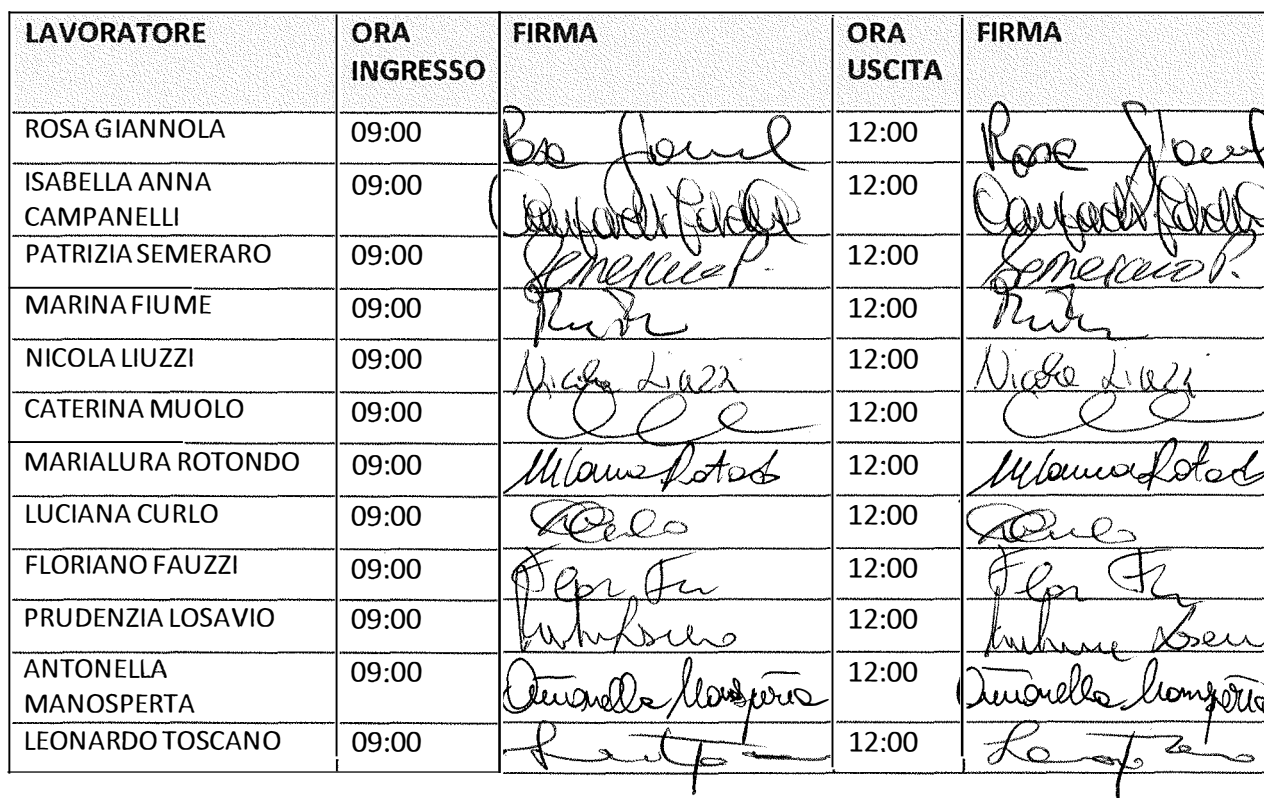 LAVORATORE ORA INGRESSO FIRMA ORA USCITA FIRMA
ROSA GIANNOLA 09:00 Rosa 12:00 Rosa
ISABELLA ANNA CAMPANELLI 09:00 12:00
PATRIZIA SEMERARO 09:00 Semeraro P. 12:00 Semeraro P.
MARINA FIUME 09:00 12:00
NICOLA LIUZZI 09:00 Nicola Liuzzi 12:00 Nicola Liuzzi
CATERINA MUOLO 09:00 12:00
MARIALURA ROTONDO 09:00 12:00
LUCIANA CURLO 09:00 12:00
FLORIANO FAUZZI 09:00 12:00
PRUDENZIA LOSAVIO 09:00 12:00
ANTONELLA MANOSPERTA 09:00 Antonella Manosperta 12:00 Antonella Manosperta
LEONARDO TOSCANO 09:00 12:00